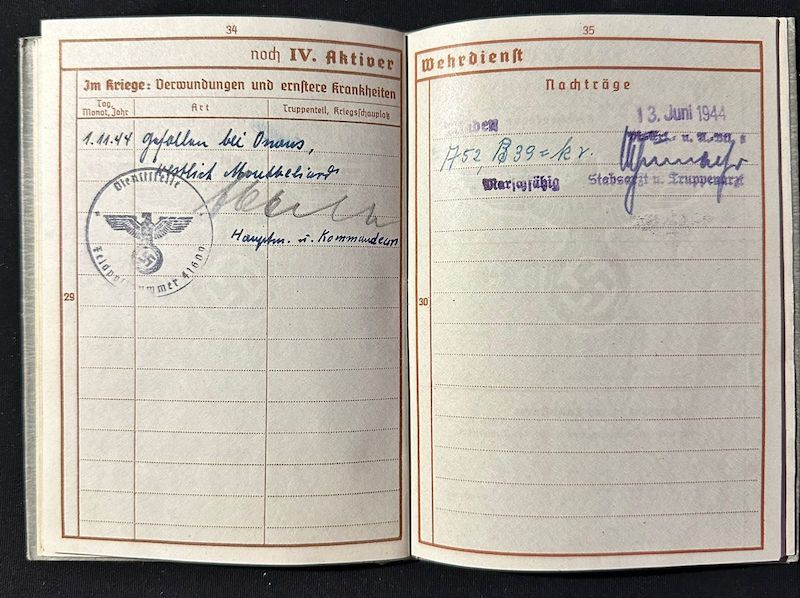 34
noch IV. Aktiver
Im Kriege: Verwundungen und ernstere Krankheiten
Tag, Monat, Jahr
Art
Truppenteil, Kriegsschauplatz
1.11.44 gefallen bei Onans,
westlich Montbeliard
Hauptm. u. Kommandeur
Dienststelle
Feldpostnummer 41600
29
35
Wehrdienst
Nachträge
13. Juni 1944
A52, B39 = kr.
Marschfähig
Stabsarzt u. Truppenarzt
30